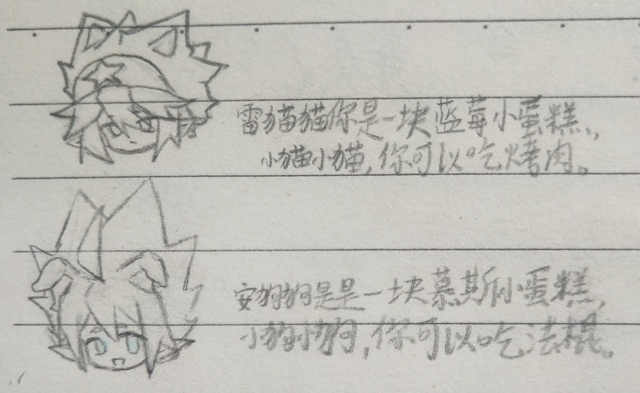 雷猫猫你是一块蓝莓小蛋糕，
小猫小猫，你可以吃烤肉。
安狗狗是是一块慕斯小蛋糕，
小狗小狗，你可以吃法棍。